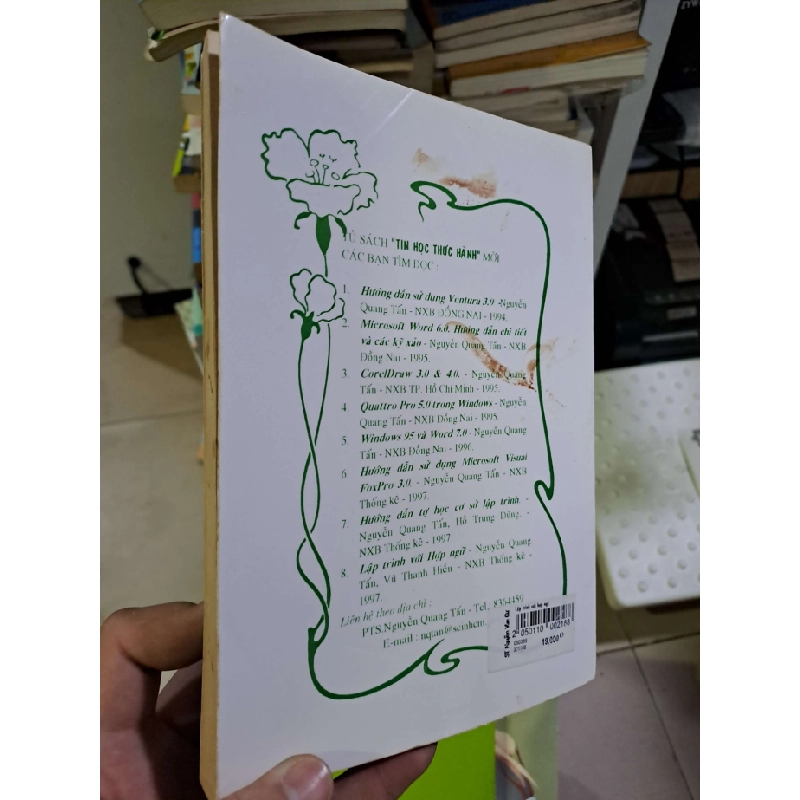 TỦ SÁCH "TIN HỌC THỰC HÀNH" MỜI
CÁC BẠN TÌM ĐỌC :
1. Hướng dẫn sử dụng Ventura 3.0 -Nguyễn
Quang Tấn - NXB ĐỒNG NAI - 1994.
2. Microsoft Word 6.0. Hướng dẫn chi tiết
và các kỹ xảo - Nguyễn Quang Tấn - NXB
Đồng Nai - 1995.
3 CorelDraw 3.0 & 4.0. - Nguyễn Quang
Tấn - NXB TP. Hồ Chí Minh - 1995.
4 Quattro Pro 5.0 trong Windows - Nguyễn
Quang Tấn - NXB Đồng Nai - 1995.
5 Windows 95 và Word 7.0 - Nguyễn Quang
Tấn - NXB Đồng Nai - 1996.
6. Hướng dẫn sử dụng Microsoft Visual
FoxPro 3.0. - Nguyễn Quang Tấn - NXB
Thống kê - 1997.
7. Hướng dẫn tự học cơ sở lập trình. -
Nguyễn Quang Tấn, Hồ Trung Dũng. -
NXB Thống kê - 1997
8. Lập trình với Hợp ngữ - Nguyễn Quang
Tấn, Vũ Thanh Hiền - NXB Thống kê -
1997.
Liên hệ theo địa chỉ :
PTS.Nguyễn Quang Tấn - Tel.: 8354459
E-mail :
2 050110 002168
10,000